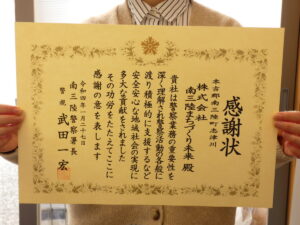 感謝状
本吉郡南三陸町志津川
株式会社
南三陸まちづくり未来 殿
貴社は警察業務の重要性を
深く理解され警察活動の各般に
渡り積極的に支援するなど
安全安心な地域社会の実現に
多大な貢献をされました
その功労をたたえてここに
感謝の意を表します
令和四年一月二十七日
南三陸警察署長
警視 武田一宏